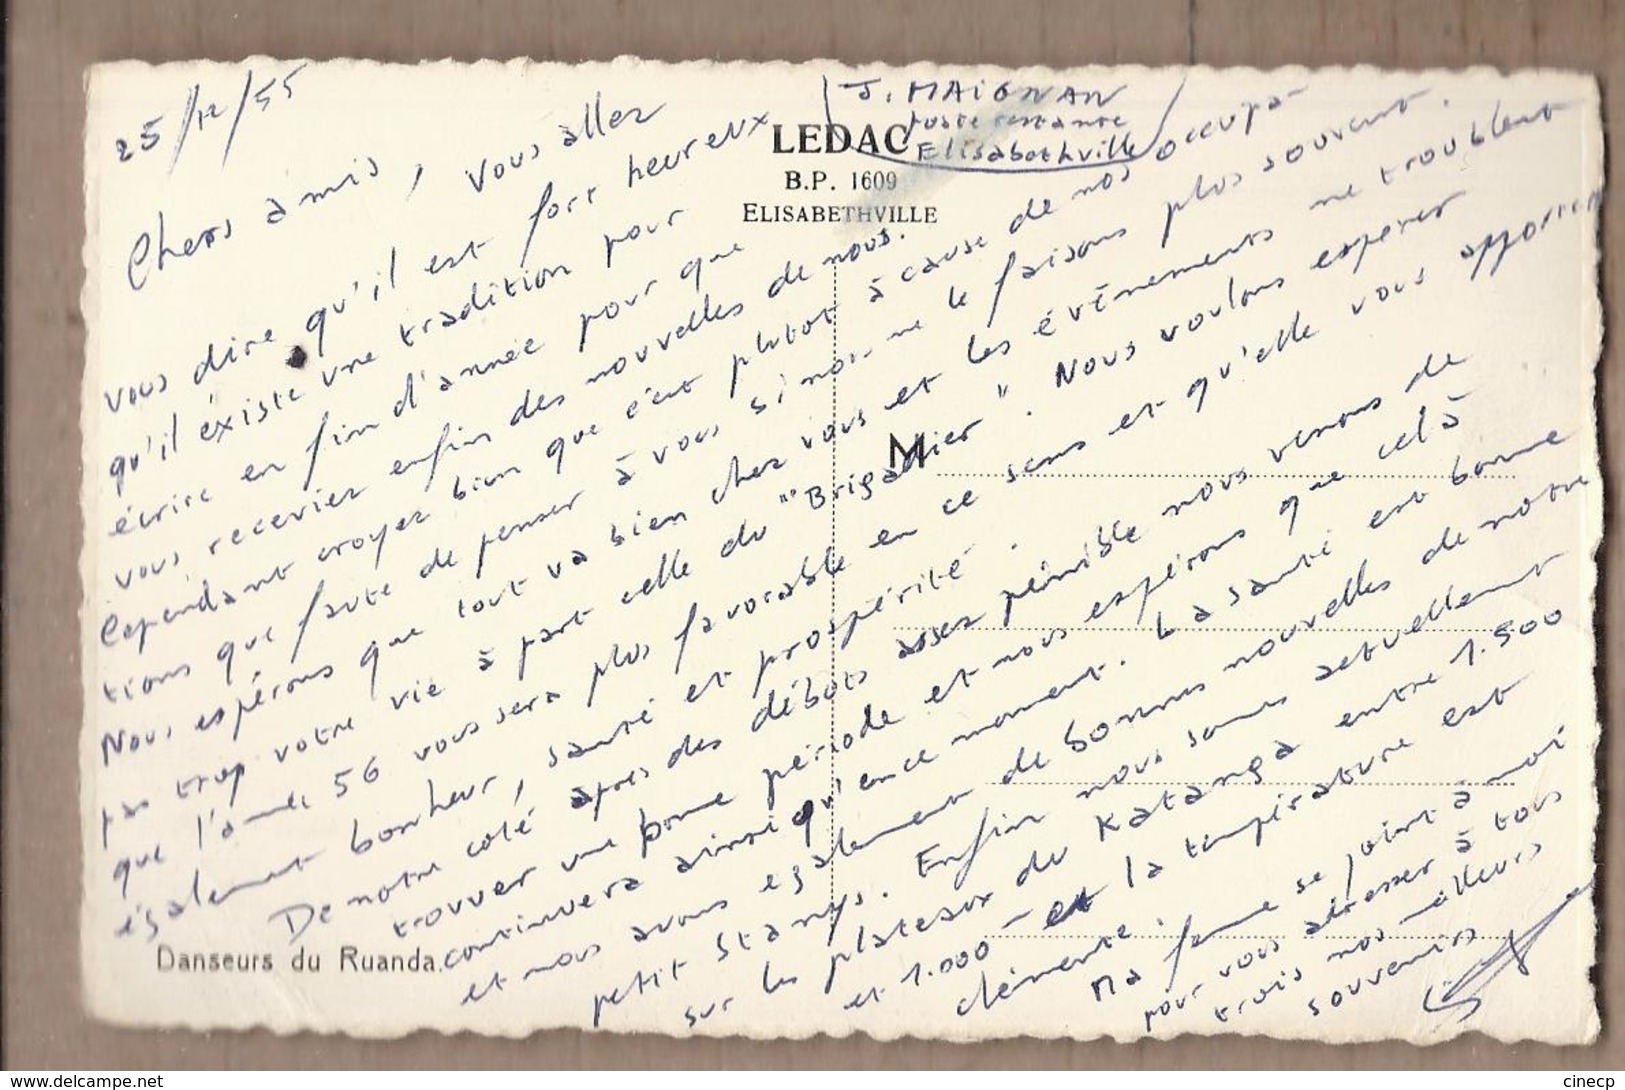 25/12/55
J. MAIGNAN
poste restante
Elisabethville
LEDAC
B.P. 1609
ELISABETHVILLE
Chers amis, vous allez
vous dire qu'il est fort heureux
qu'il éxiste une tradition pour
écrire en fin d'année pour que
vous receviez enfin des nouvelles de nous.
Cependant croyez bien que c'est plutot à cause de nos occupa-
tions que faute de penser à vous si nous ne le faisons plus souvent.
Nous espérons que tout va bien chez vous et les évênements ne troublent
pas trop votre vie à part celle du "Brigadier". Nous voulons espérer
que l'année 56 vous sera plus favorable en ce sens et qu'elle vous apportera
également bonheur, santé et prospérité.
De notre coté après des débuts assez pénible nous venons de
trouver une bonne période et nous espérons que celà
continuera ainsi qu'en ce moment. La santé est bonne
et nous avons également de bonnes nouvelles de notre
petit Stanys. Enfin nous sommes actuellement
sur les plateaux du Katanga entre 1.500
et 1.000 - et la température est
clémente.
Ma femme se joint à moi
pour vous adresser à tous
trois nos meilleurs
souvenirs
M
Danseurs du Ruanda.
delcampe.net
cinecp